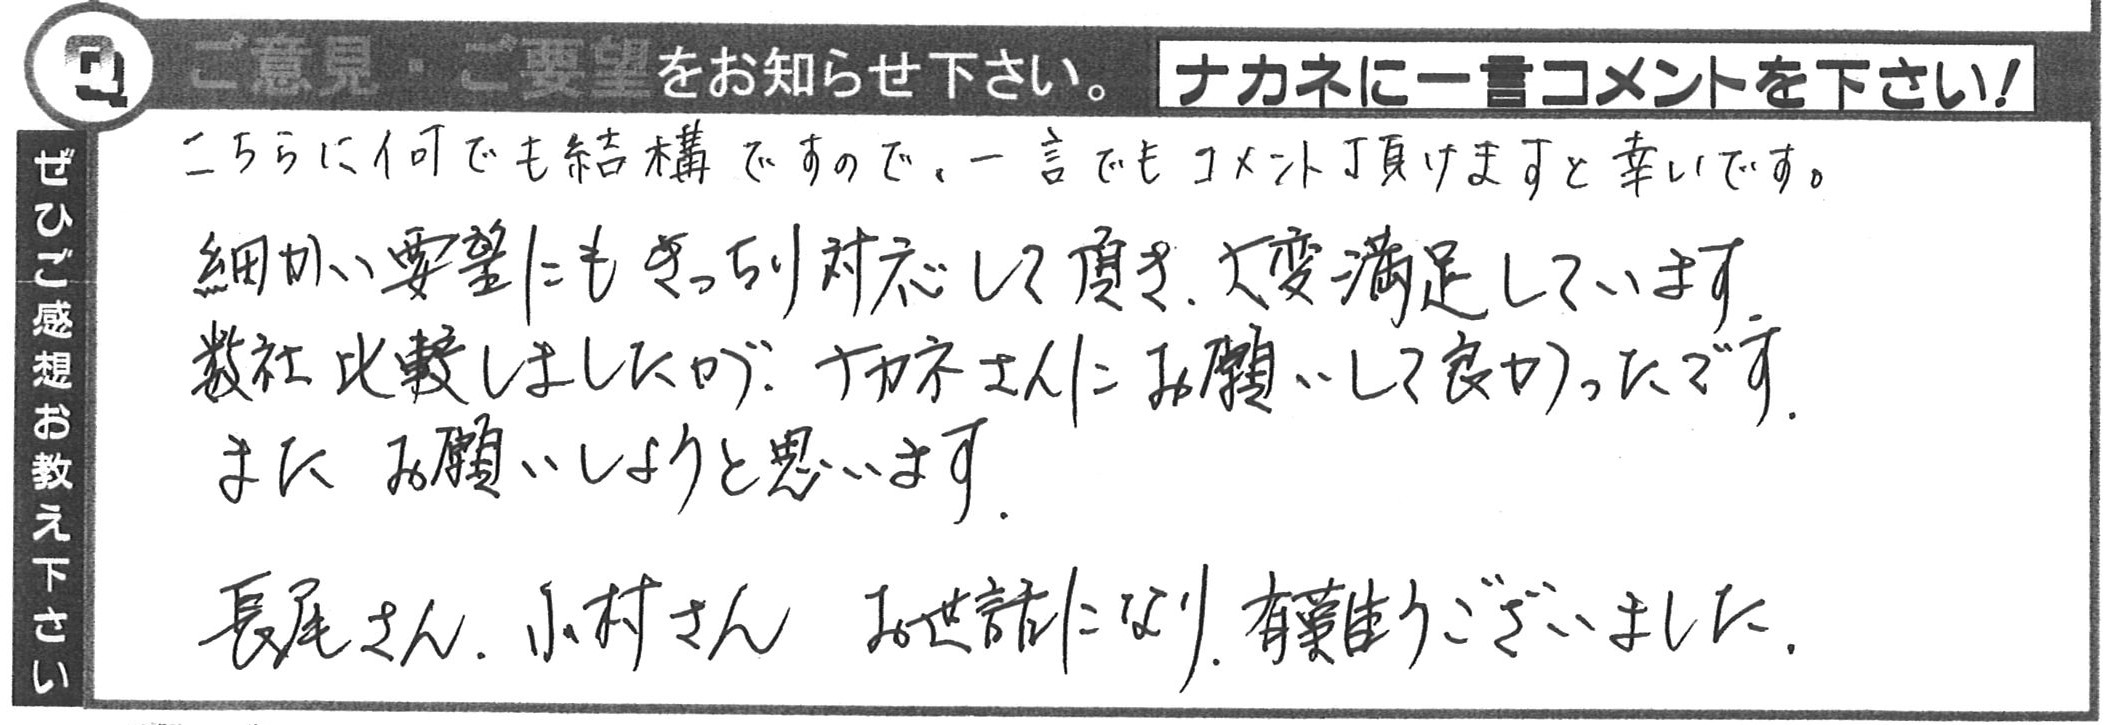 Q ご意見・ご要望をお知らせ下さい。 ナカネに一言コメントを下さい!
ぜひご感想お教え下さい
こちらに何でも結構ですので、一言でもコメント頂けますと幸いです。
細かい要望にもきっちり対応して頂き、大変満足しています
数社比較しましたが、ナカネさんにお願いして良かったです.
またお願いしようと思います.
長尾さん、小村さん お世話になり、有難うございました.